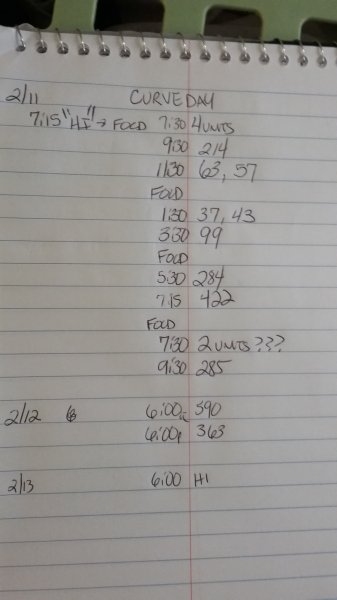 2/11 CURVE DAY
7:15 "HI" → FOOD 7:30 4 UNITS
9:30 214
11:30 63, 57
FOOD
1:30 37, 43
3:30 99
FOOD
5:30 284
7:15 422
FOOD
7:30 2 UNITS???
9:30 285
2/12 6:00a 590
6:00p 363
2/13 6:00 HI